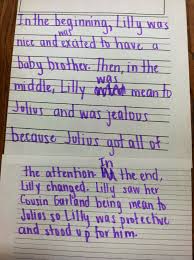 In the beginning, Lilly was
nice and was exated to have a
baby brother. Then, in the
middle, Lilly was mean to
Julius and was jealous
because Julius got all of
the attention. In the end,
Lilly changed. Lilly saw her
Cousin Garland being mean to
Julius so Lilly was protective
and stood up for him.